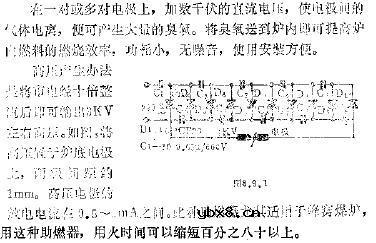 在一对或多对电极上，加数千伏的直流电压，使电极间的
气体电离，便可产生大量的臭氧。将臭氧送到炉内即可提高炉
内燃料的燃烧效率，功耗小，无噪音，使用安装方便。
高压产生办法
是将市电经十倍整
流后即可输出3KV
左右高压。如图，将
高压加于炉底电极
上，间距约
1mm。高压电极的
放电电流在0.5～mA之间。适用于蜂窝煤炉，
用这种助燃器，用火时间可以缩短百分之八十以上。
3KV
电极
C1-20 0.022/600V
图8.9.1
ybx8.cn